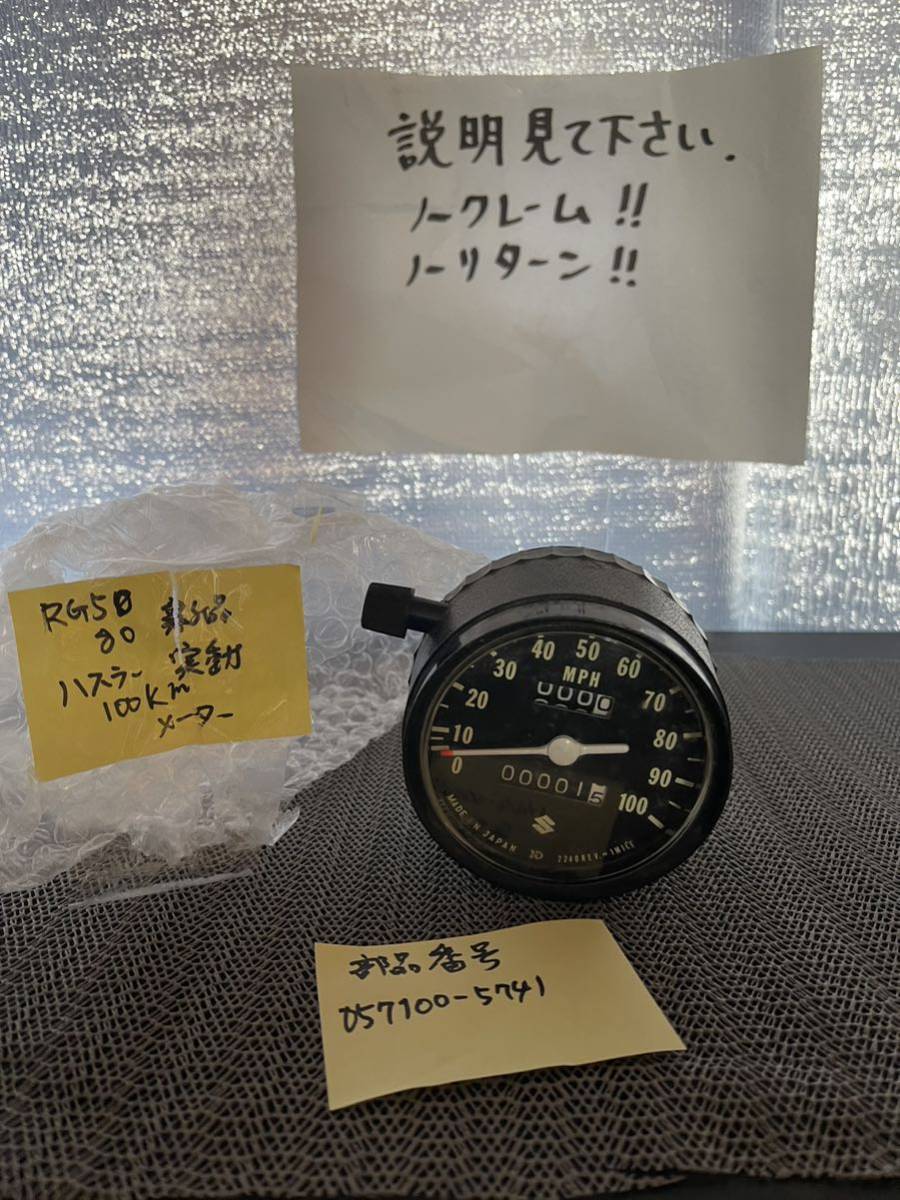 説明見て下さい.
ノークレーム!!
ノーリターン!!
RG50 新品
80 実動
ハスラー
100km
メーター
0 10 20 30 40 50 60 70 80 90 100
MPH
0000
000015
MADE IN JAPAN ND 2240REV.=1MILE
部品番号
057100-5741